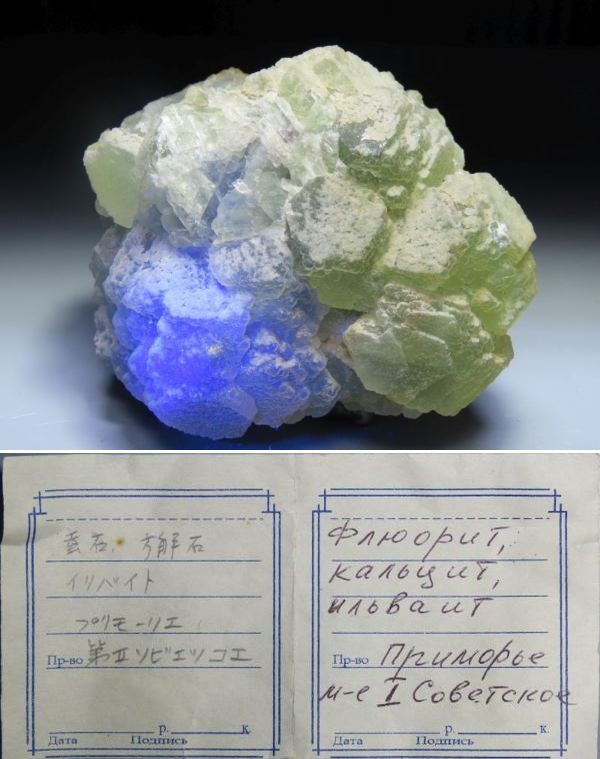 蛍石、方解石
イリバイト
プリモーリエ
Пр-во 第Ⅱソビエツコエ
р. к.
Дата Подпись
Флюорит,
кальцит,
ильваит
Пр-во Приморье
м-е I Советское
р. к.
Дата Подпись